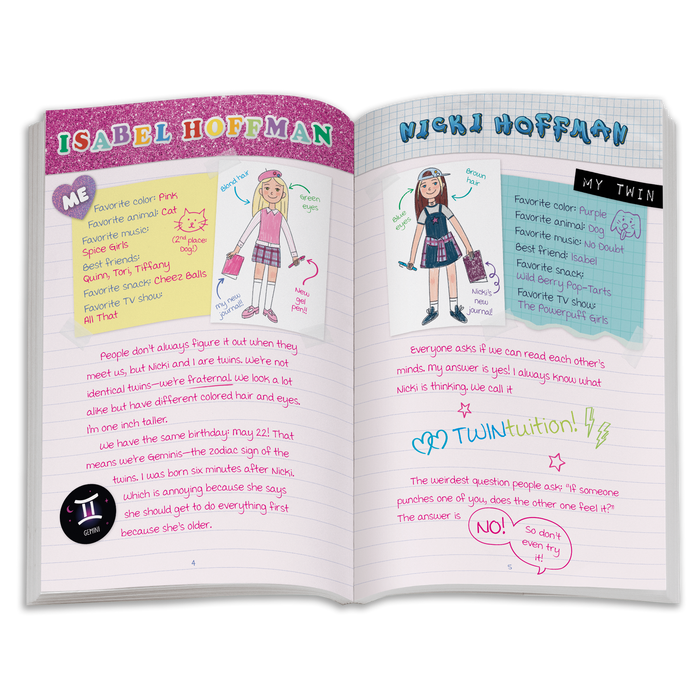 ISABEL HOFFMAN
ME
Favorite color: Pink
Favorite animal: Cat
(2nd place: Dog!)
Favorite music:
Spice Girls
Best friends:
Quinn, Tori, Tiffany
Favorite snack: Cheez Balls
Favorite TV show:
All That
Blond hair
Green eyes
my new journal!
New gel pen!
People don't always figure it out when they
meet us, but Nicki and I are twins. We're not
identical twins—we're fraternal. We look a lot
alike but have different colored hair and eyes.
I'm one inch taller.
We have the same birthday: May 22! That
means we're Geminis—the zodiac sign of the
twins. I was born six minutes after Nicki,
which is annoying because she says
she should get to do everything first
because she's older.
GEMINI
4
NICKI HOFFMAN
MY TWIN
Brown hair
Blue eyes
Nicki's new journal!
Favorite color: Purple
Favorite animal: Dog
Favorite music: No Doubt
Best friend: Isabel
Favorite snack:
Wild Berry Pop-Tarts
Favorite TV show:
The Powerpuff Girls
Everyone asks if we can read each other's
minds. My answer is yes! I always know what
Nicki is thinking. We call it
TWINtuition!
The weirdest question people ask: "If someone
punches one of you, does the other one feel it?"
The answer is
NO!
So don't
even try
it!
5